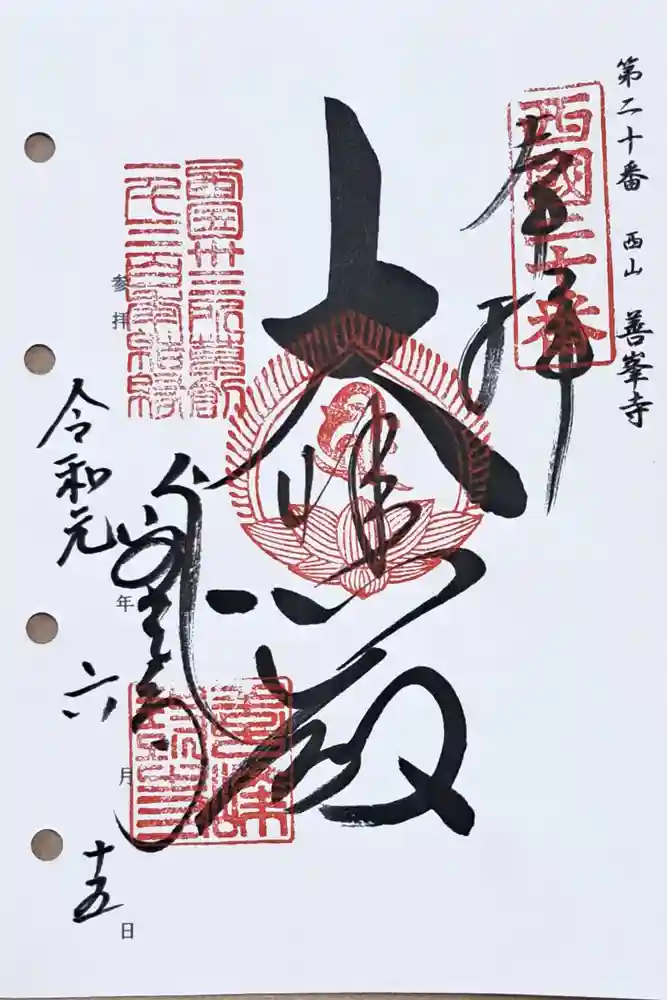 第二十番 西山 善峯寺
奉拝
西國二十番
大悲殿
西國卅三所草創
一千三百年記念
参拝
善峯寺
令和元年六月十五日